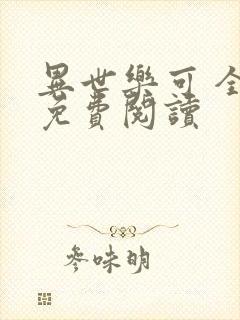 異世樂可全
免費閱讀
參味明